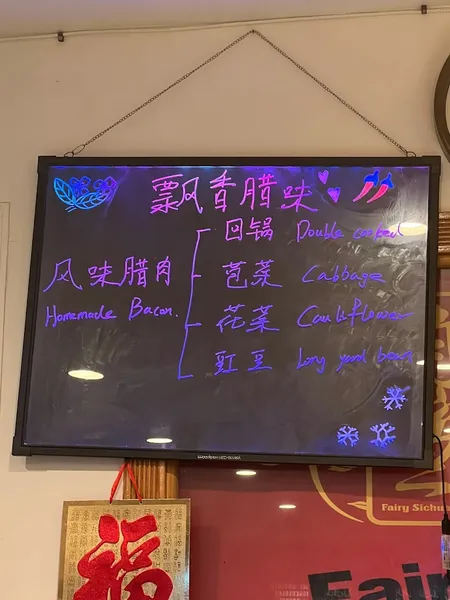 飘香腊味
回锅 Double cooked
风味腊肉
苞菜 Cabbage
Homemade Bacon.
花菜 Cauliflower
豇豆 Long yard bean
福
Fairy Sichu
Fair